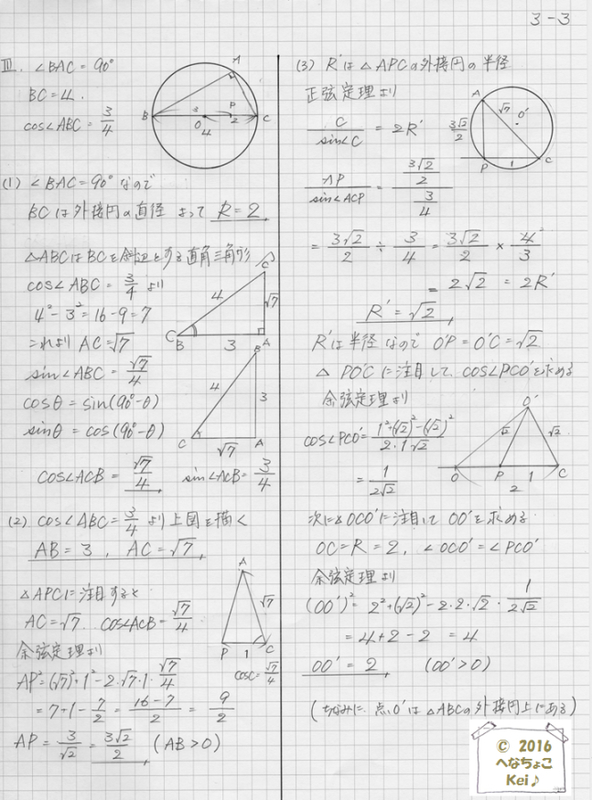 3-3
Ⅲ. ∠BAC = 90°
BC = 4.
cos∠ABC = 3/4
A
B
3
P
O
4
2
C
(1) ∠BAC = 90° なので
BCは外接円の直径 よって R = 2
△ABCはBCを斜辺とする直角三角形
cos∠ABC = 3/4 より
4² - 3² = 16 - 9 = 7
これより AC = √7
sin∠ABC = √7/4
cosθ = sin(90°-θ)
sinθ = cos(90°-θ)
cos∠ACB = √7/4, sin∠ACB = 3/4
C
4
√7
B
3
A
B
4
3
C
√7
A
(2) cos∠ABC = 3/4 より上図を描く
AB = 3, AC = √7,
△APCに注目すると
AC = √7 cos∠ACB = √7/4
余弦定理より
AP² = (√7)² + 1² - 2·√7·1·√7/4
= 7 + 1 - 7/2 = (16-7)/2 = 9/2
AP = 3/√2 = 3√2/2, (AB > 0)
A
√7
P
1
C
cosC = √7/4
(3) R'は△APCの外接円の半径
正弦定理より
C/sin∠C = 2R'
AP/sin∠ACP = (3√2/2)/(3/4)
= 3√2/2 ÷ 3/4 = 3√2/2 × 4²/3
= 2√2 = 2R'
R' = √2,
A
√7
O'
3√2/2
P
1
C
R'は半径なので O'P = O'C = √2
△PO'Cに注目して, cos∠PCO'を求める
余弦定理より
cos∠PCO' = (1² + (√2)² - (√2)²)/(2·1·√2)
= 1/(2√2)
O'
√2
√2
O
P
1
C
2
次に△OCO'に注目して OO'を求める
OC = R = 2, ∠OCO' = ∠PCO'
余弦定理より
(OO')² = 2² + (√2)² - 2·2·√2·1/(2√2)
= 4 + 2 - 2 = 4
OO' = 2, (OO' > 0)
(ちなみに, 点O'は△ABCの外接円上にある)
© 2016
へなちょこ
Kei♪